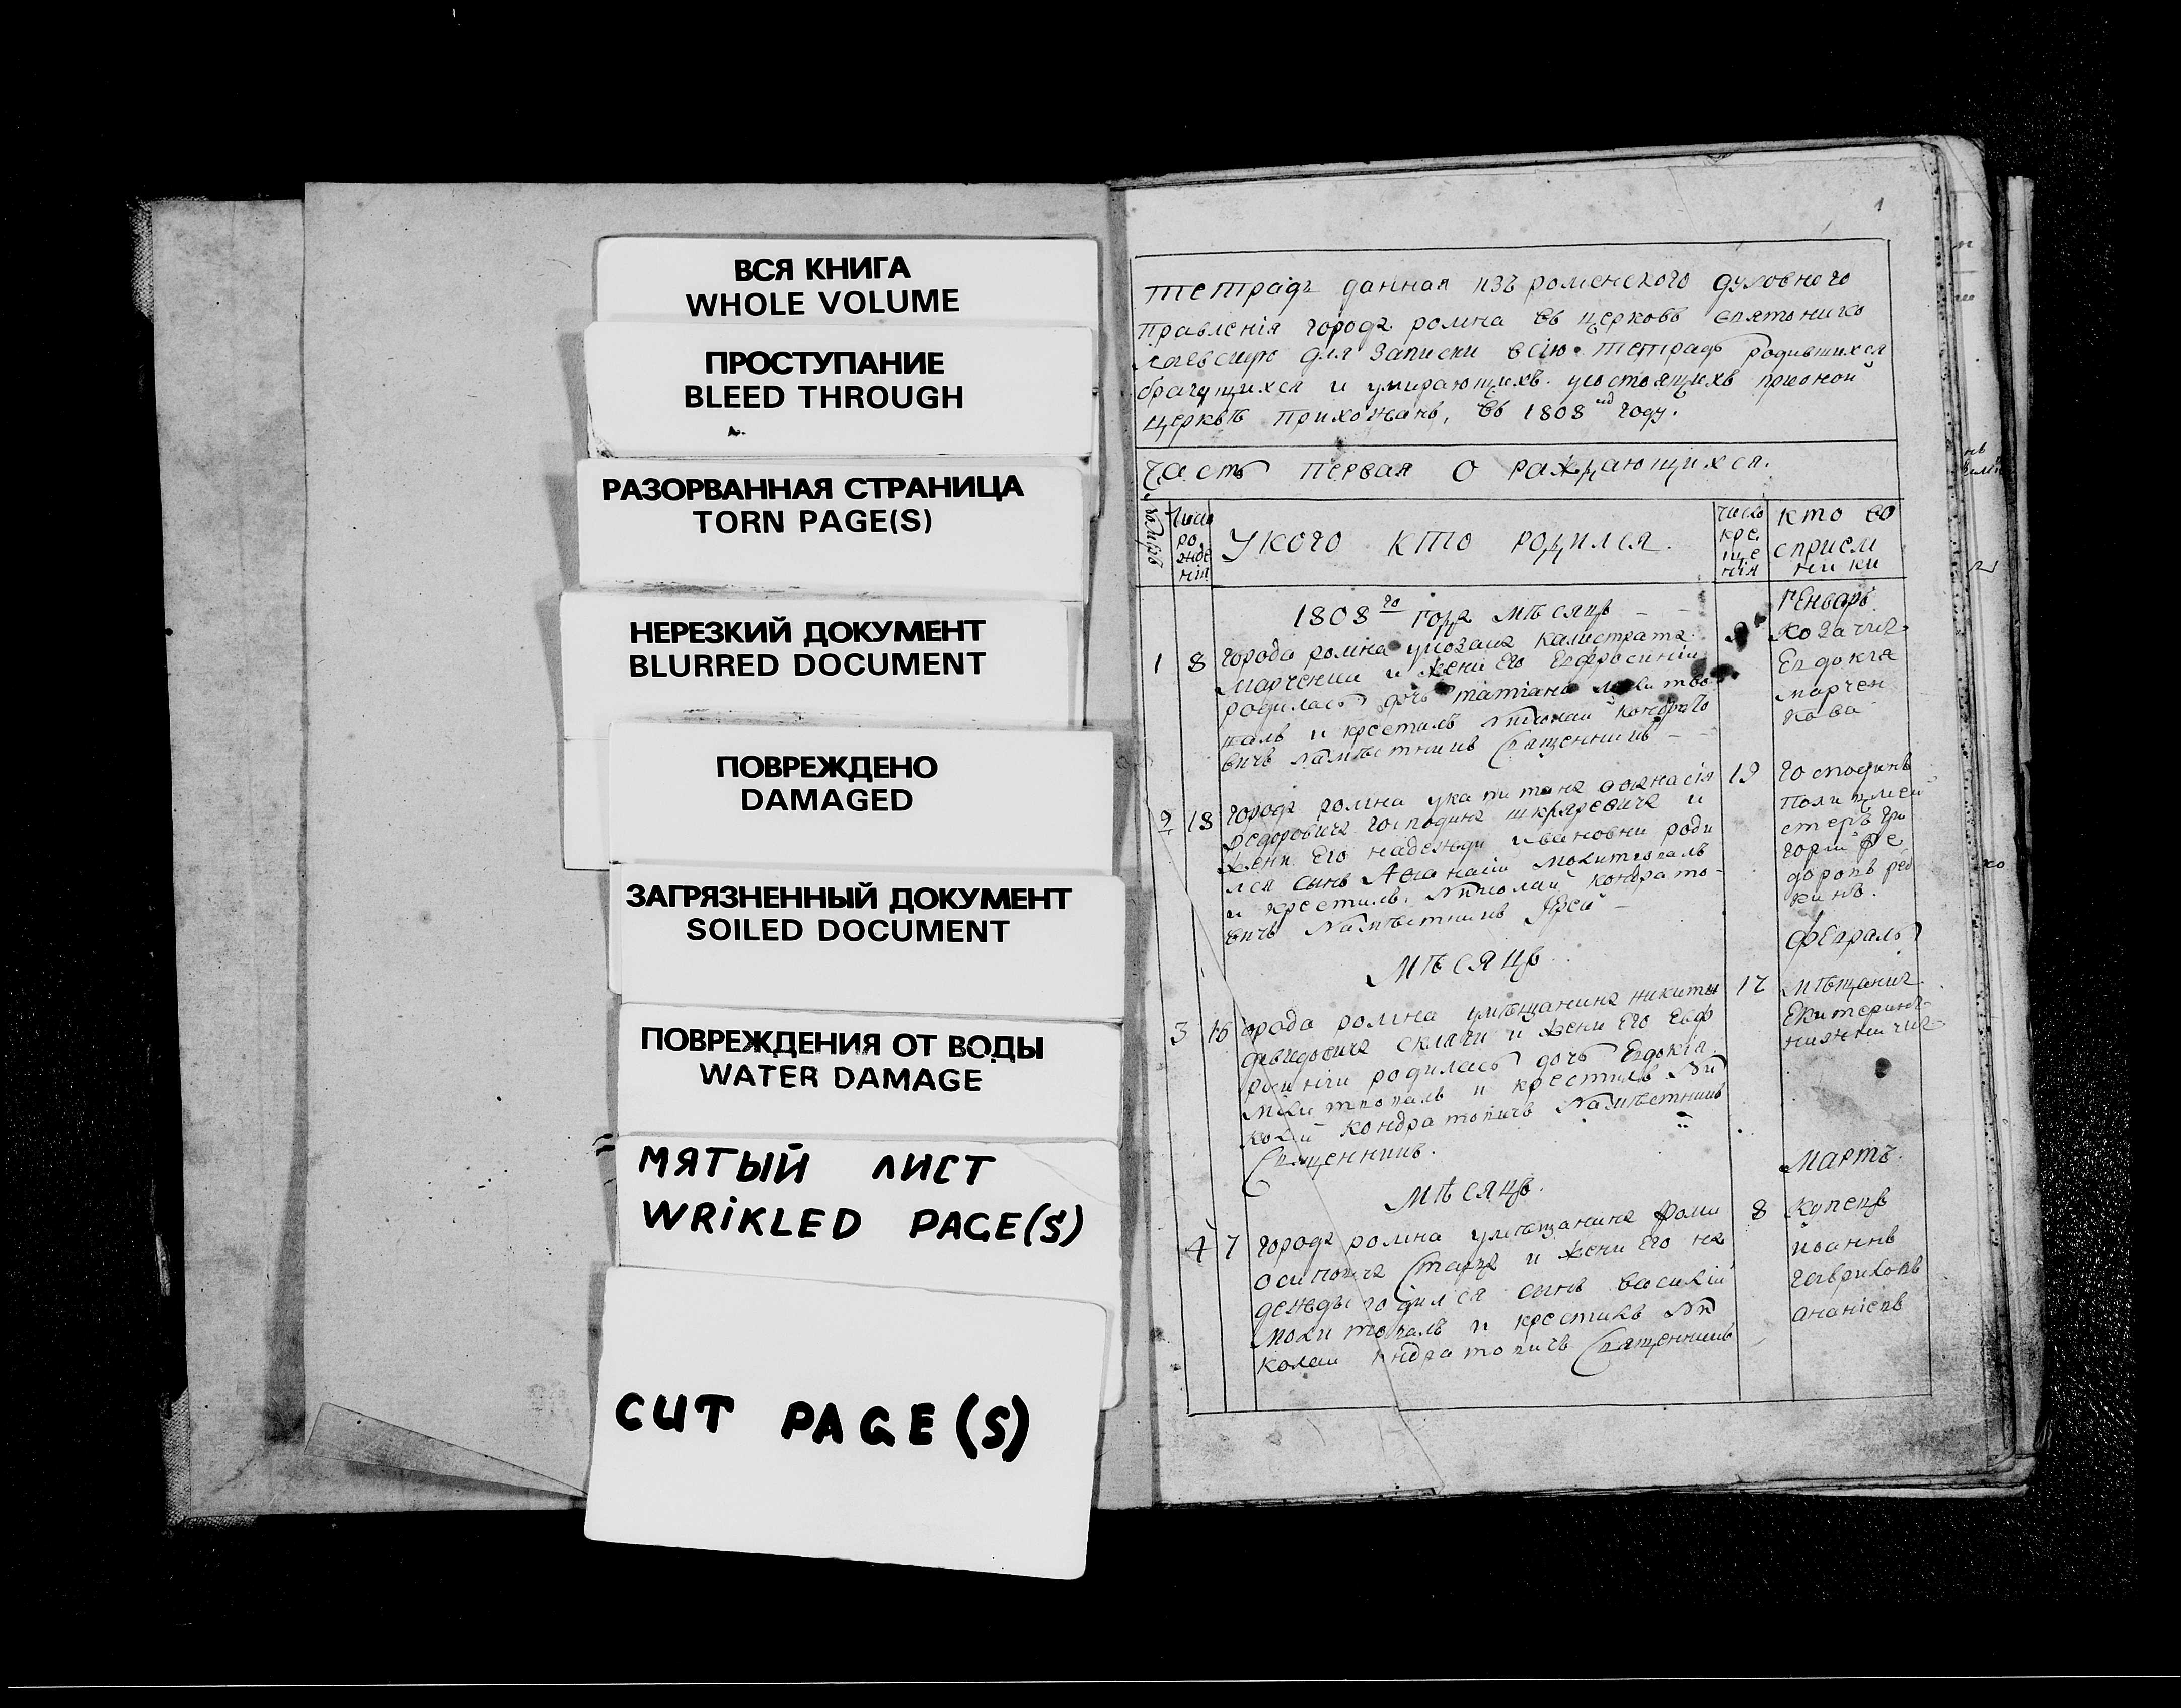 ВСЯ КНИГА
WHOLE VOLUME
ПРОСТУПАНИЕ
BLEED THROUGH
РАЗОРВАННАЯ СТРАНИЦА
TORN PAGE(S)
НЕРЕЗКИЙ ДОКУМЕНТ
BLURRED DOCUMENT
ПОВРЕЖДЕНО
DAMAGED
ЗАГРЯЗНЕННЫЙ ДОКУМЕНТ
SOILED DOCUMENT
ПОВРЕЖДЕНИЯ ОТ ВОДЫ
WATER DAMAGE
МЯТЫЙ ЛИСТ
WRiKLED PAGE(S)
CUT PAGE(S)
1
тетрадь данная изъ роменского духовного
правленія города ромна въ церковь святонико
лаевскую для записки всію тетрадь родившихся
брачущихся и умирающихъ у состоящихъ при оной
церквѣ прихожанъ, въ 1808 году.
Часть первая о раждающихся.
число рожденія
У кого кто родился.
число крещенія
кто восприемники
1808го года мѣсяцъ
Генварь
1 8 города ромна у козака калистрата
марченки и жени его евфросиніи
родилась дочь татіана молитво
валъ и крестилъ Николай кондрато
вичъ намѣстникъ Священникъ
козачка
Евдокія
марчен
кова
2 18 города ромна у капитана афанасія
федоровича господина шкляревича и
жени его надежди ивановни роди
лся сынъ Афанасій молитвовалъ
и крестилъ Николай кондрато
вичъ Намѣстникъ Іерей
19 господинъ
полицмей
стеръ гри
горій фе
доровъ ред
кинъ.
мѣсяцъ
февраль
3 16 города ромна у мѣщанина никиты
давидовича склярa и жени его евф
росиніи родилась дочь Евдокія
молитвовалъ и крестилъ Ни
колай кондратовичъ Намѣстникъ
Священникъ.
17 мѣщанка
Екатерина
мѣсяцъ.
мартъ.
4 7 города ромна у мѣщанина фоми
осиповича и жени его на
дежды родился сынъ василій
молитвовалъ и крестилъ Ни
колай кондратовичъ Священникъ
8 купецъ
иоаннъ
гавриловъ
ананіевъ